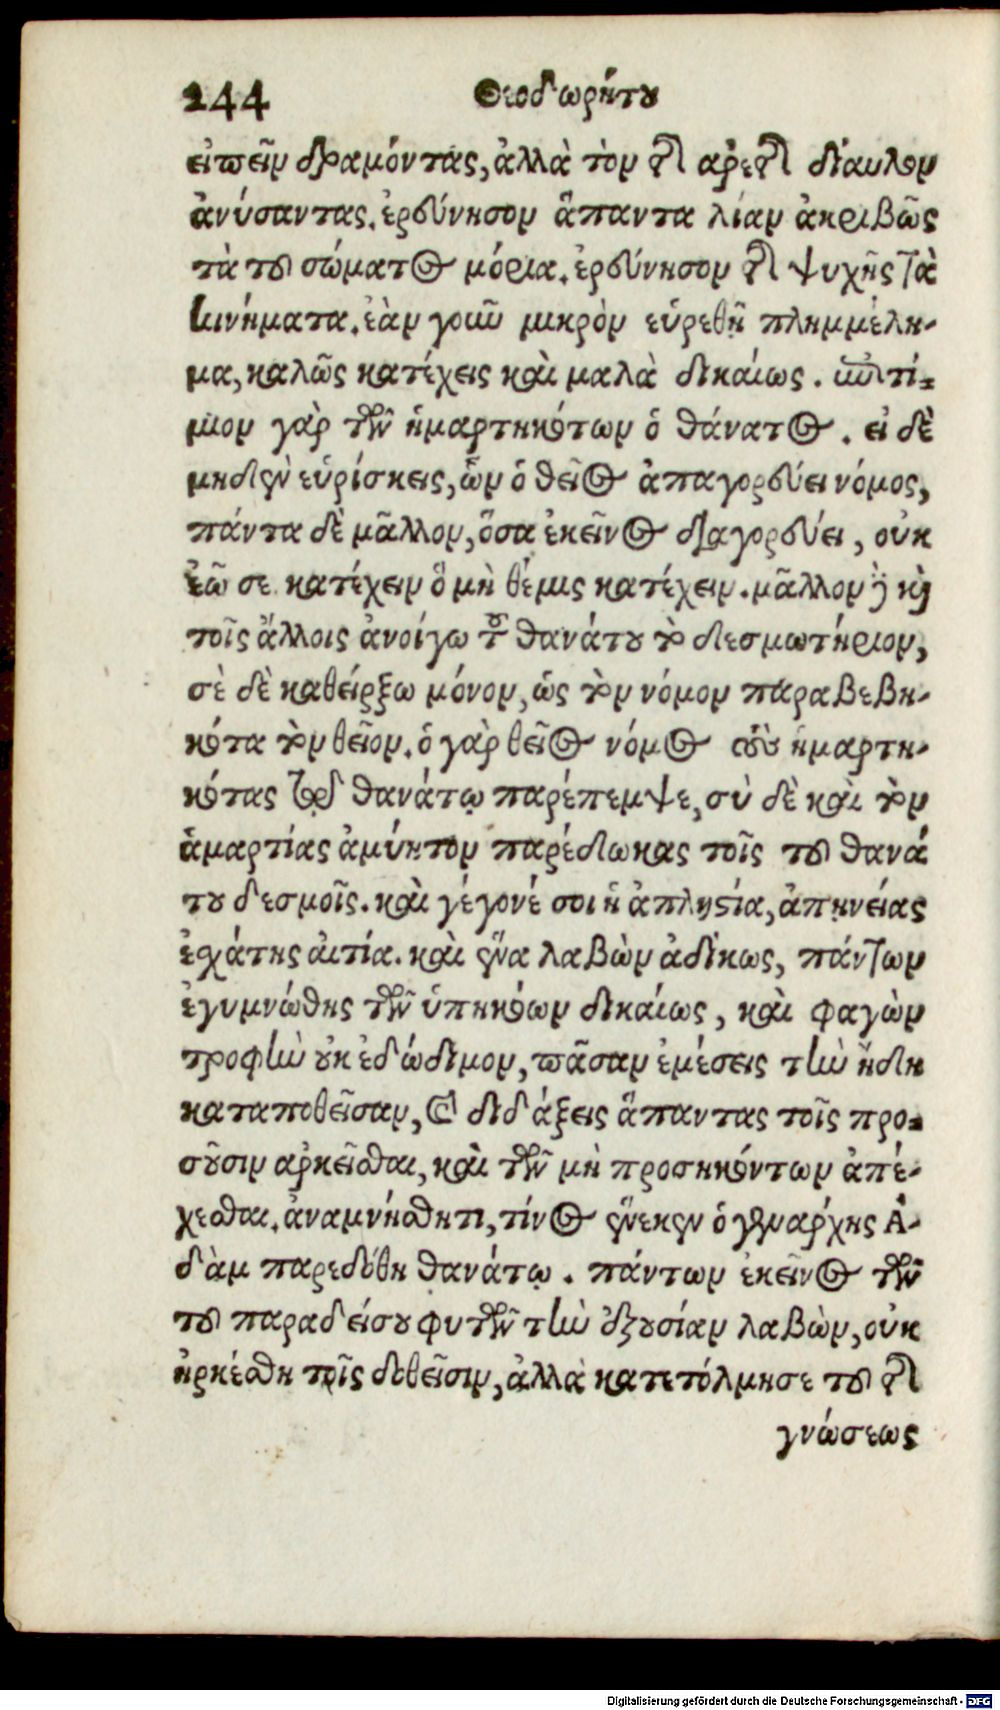 244 Θεοδωρήτου
εἰπεῖν δραμόντας, ἀλλὰ τὸν τῆς ἀρετῆς δίαυλον
ἀνύσαντας. ἐρεύνησον ἅπαντα λίαν ἀκριβῶς
τὰ τοῦ σώματος μόρια. ἐρεύνησον τῆς ψυχῆς τὰ
κινήματα. ἐὰν γοῦν μικρὸν εὑρεθῇ πλημμέλη-
μα, καλῶς κατέχεις καὶ μαλὰ δικαίως. ἐπιτί-
μιον γὰρ τῶν ἡμαρτηκότων ὁ θάνατος. εἰ δὲ
μηδὲν εὑρίσκεις, ὧν ὁ θεῖος ἀπαγορεύει νόμος,
πάντα δὲ μᾶλλον, ὅσα ἐκεῖνος διαγορεύει, οὐκ
ἐῶ σε κατέχειν ὃ μὴ θέμις κατέχειν. μᾶλλον δὲ καὶ
τοῖς ἄλλοις ἀνοίγω τοῦ θανάτου τὸ δεσμωτήριον,
σὲ δὲ καθείρξω μόνον, ὡς τὸν νόμον παραβεβη-
κότα τὸν θεῖον. ὁ γὰρ θεῖος νόμος τοὺς ἡμαρτη-
κότας τῷ θανάτῳ παρέπεμψε, σὺ δὲ καὶ τὸν
ἁμαρτίας ἀμύητον παρέδωκας τοῖς τοῦ θανά
του δεσμοῖς. καὶ γέγονέ σοι ἡ ἀπληστία, ἀπηνείας
ἐσχάτης αἰτία. καὶ ἕνα λαβὼν ἀδίκως, πάντων
ἐγυμνώθης τῶν ὑπηκόων δικαίως, καὶ φαγὼν
τροφὴν οὐκ ἐδώδιμον, πᾶσαν ἐμέσεις τὴν ἤδη
καταποθεῖσαν, καὶ διδάξεις ἅπαντας τοῖς προ-
σοῦσιν ἀρκεῖσθαι, καὶ τῶν μὴ προσηκόντων ἀπέ-
χεσθαι. ἀναμνήσθητι, τίνος ἕνεκεν ὁ γενάρχης Ἀ-
δὰμ παρεδόθη θανάτῳ. πάντων ἐκεῖνος τῶν
τοῦ παραδείσου φυτῶν τὴν ἐξουσίαν λαβὼν, οὐκ
ἠρκέσθη τοῖς δοθεῖσιν, ἀλλὰ κατετόλμησε τοῦ τῆς
γνώσεως
Digitalisierung gefördert durch die Deutsche Forschungsgemeinschaft - DFG